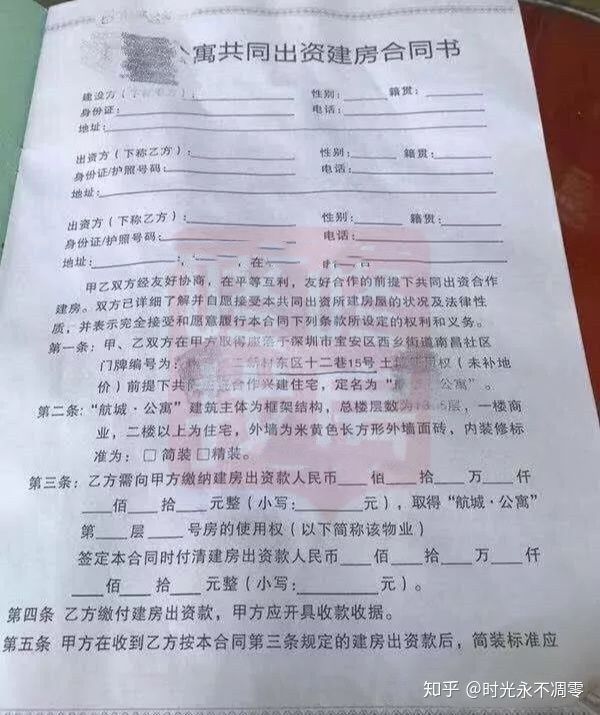 寓共同出资建房合同书
建设方(下称甲方):________ 性别:____ 籍贯:____
身份证:________ 电话:________
地址:________
出资方(下称乙方):________ 性别:____ 籍贯:____
身份证/护照号码:________ 电话:________
地址:________
出资方(下称乙方):________ 性别:____ 籍贯:____
身份证/护照号码:________ 电话:________
地址:________
甲乙双方经友好协商,在平等互利,友好合作的前提下共同出资合作
建房。双方已详细了解并自愿接受本共同出资所建房屋的状况及法律性
质,并表示完全接受和愿意履行本合同下列条款所设定的权利和义务。
第一条:甲、乙双方在甲方取得座落于深圳市宝安区西乡街道南昌社区
门牌编号为: 新村东区十二巷15号 土 权(未补地
价)前提下共 合作兴建住宅,定名为“ 公寓”。
第二条:“航城·公寓”建筑主体为框架结构,总楼层数为 层,一楼商
业,二楼以上为住宅,外墙为米黄色长方形外墙面砖,内装修标
准为:□简装□精装。
第三条:乙方需向甲方缴纳建房出资款人民币____佰____拾____万____仟
____佰____拾____元整(小写:________元),取得“航城·公寓”
第____层____号房的使用权(以下简称该物业)
签定本合同时付清建房出资款人民币____佰____拾____万____仟
____佰____拾____元整(小写:________元)。
第四条 乙方缴付建房出资款,甲方应开具收款收据。
第五条 甲方在收到乙方按本合同第三条规定的建房出资款后,简装标准应
知乎 @时光永不凋零